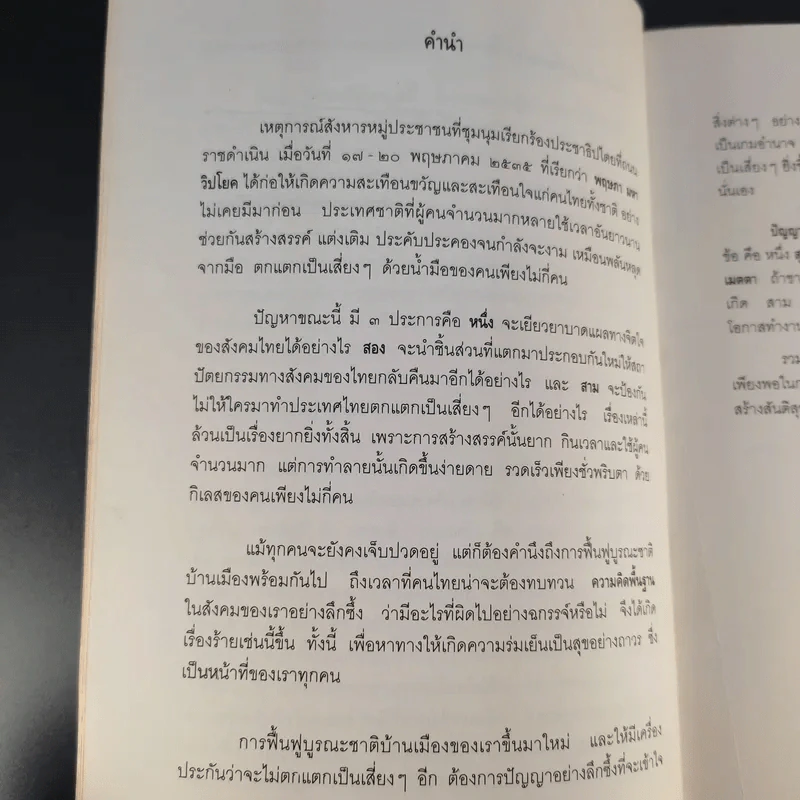 คำนำ
เหตุการณ์สังหารหมู่ประชาชนที่ชุมนุมเรียกร้องประชาธิปไตยที่ถนน
ราชดำเนิน เมื่อวันที่ ๑๗-๒๐ พฤษภาคม ๒๕๓๕ ที่เรียกว่า พฤษภา มหา
วิปโยค ได้ก่อให้เกิดความสะเทือนขวัญและสะเทือนใจแก่คนไทยทั้งชาติ อย่าง
ไม่เคยมีมาก่อน ประเทศชาติที่ผู้คนจำนวนมากหลายใช้เวลาอันยาวนาน
ช่วยกันสร้างสรรค์ แต่งเติม ประคับประคองจนกำลังจะงาม เหมือนพลันหลุด
จากมือ ตกแตกเป็นเสี่ยงๆ ด้วยน้ำมือของคนเพียงไม่กี่คน
ปัญหาขณะนี้ มี ๓ ประการคือ หนึ่ง จะเยียวยาบาดแผลทางจิตใจ
ของสังคมไทยได้อย่างไร สอง จะนำชิ้นส่วนที่แตกมาประกอบกันใหม่ให้สถา
ปัตยกรรมทางสังคมของไทยกลับคืนมาอีกได้อย่างไร และ สาม จะป้องกัน
ไม่ให้ใครมาทำประเทศไทยตกแตกเป็นเสี่ยงๆ อีกได้อย่างไร เรื่องเหล่านี้
ล้วนเป็นเรื่องยากยิ่งทั้งสิ้น เพราะการสร้างสรรค์นั้นยาก กินเวลาและใช้ผู้คน
จำนวนมาก แต่การทำลายนั้นเกิดขึ้นง่ายดาย รวดเร็วเพียงชั่วพริบตา ด้วย
กิเลสของคนเพียงไม่กี่คน
แม้ทุกคนจะยังคงเจ็บปวดอยู่ แต่ก็ต้องคำนึงถึงการฟื้นฟูบูรณะชาติ
บ้านเมืองพร้อมกันไป ถึงเวลาที่คนไทยน่าจะต้องทบทวน ความคิดพื้นฐาน
ในสังคมของเราอย่างลึกซึ้ง ว่ามีอะไรที่ผิดไปอย่างฉกรรจ์หรือไม่ จึงได้เกิด
เรื่องร้ายเช่นนี้ขึ้น ทั้งนี้ เพื่อหาทางให้เกิดความร่มเย็นเป็นสุขอย่างถาวร ซึ่ง
เป็นหน้าที่ของเราทุกคน
การฟื้นฟูบูรณะชาติบ้านเมืองของเราขึ้นมาใหม่ และให้มีเครื่อง
ประกันว่าจะไม่ตกแตกเป็นเสี่ยงๆ อีก ต้องการปัญญาอย่างลึกซึ้งที่จะเข้าใจ
สิ่งต่างๆ
เป็นเกมอำนาจ
เป็นเสี่ยงๆ
นั่นเอง
ข้อ คือ หนึ่ง
เมตตา
เกิด สาม
โอกาสทำงาน
รวม
เพียงพอใน
สร้างสันติสุข